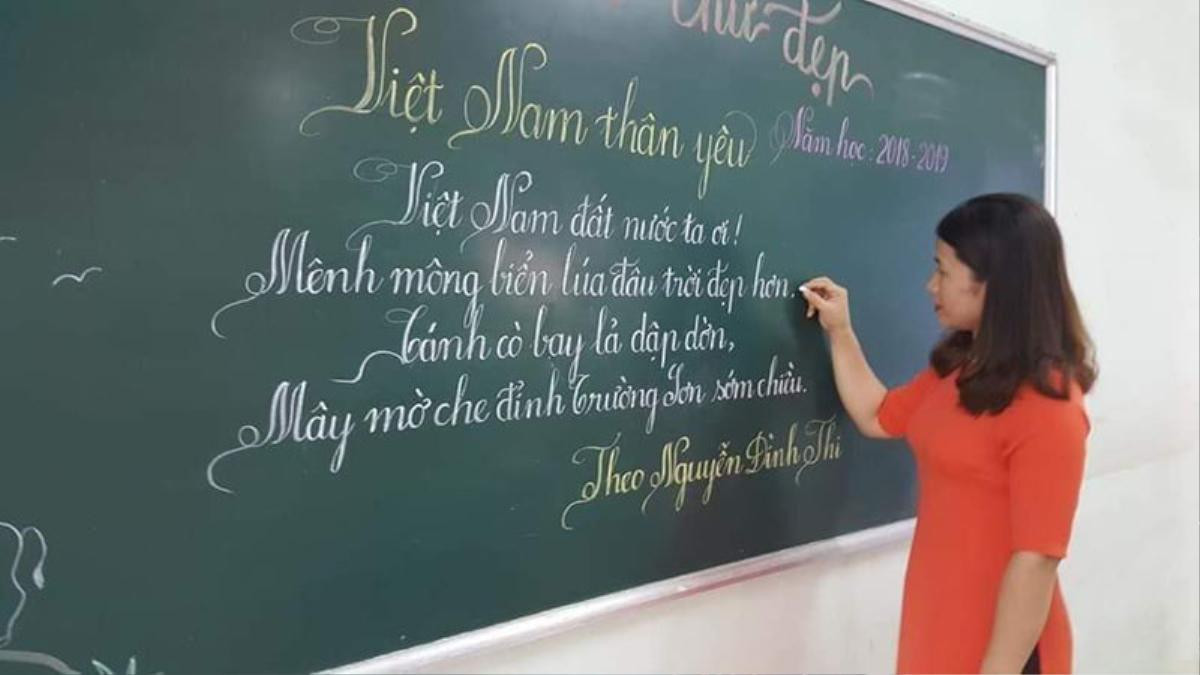 chữ đẹp
Năm học: 2018-2019
Việt Nam thân yêu
Việt Nam đất nước ta ơi!
Mênh mông biển lúa đâu trời đẹp hơn.
Cánh cò bay lả dập dờn,
Mây mờ che đỉnh Trường Sơn sớm chiều.
Theo Nguyễn Đình Thi